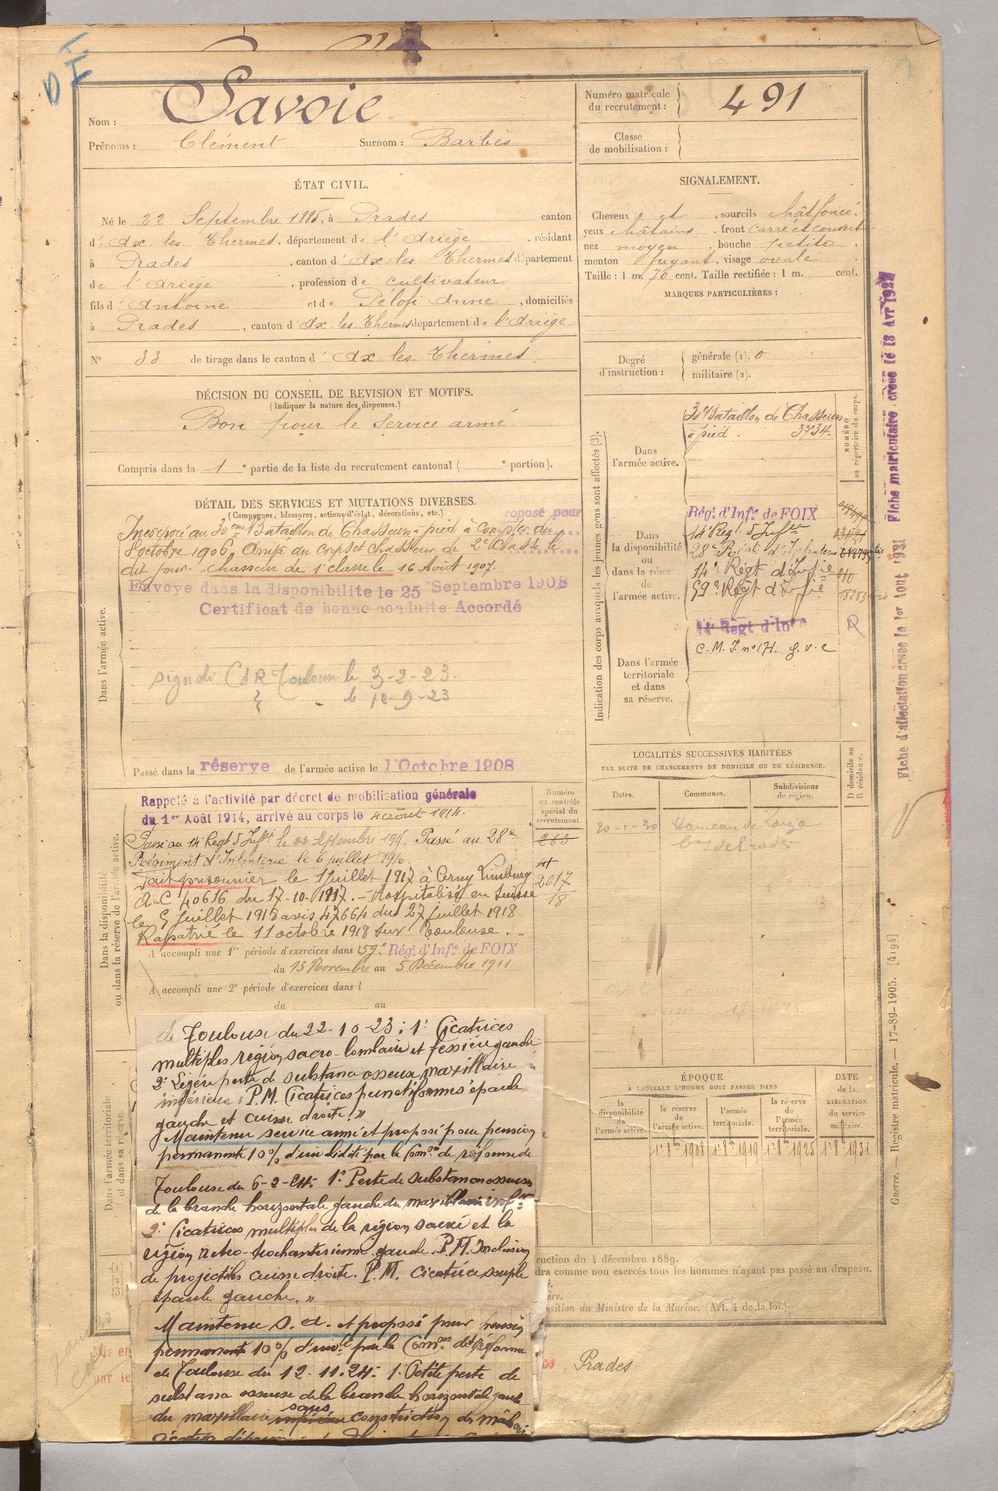 Nom : Savoie
Prénoms : Clément Surnom : Barbès
Numéro matricule du recrutement : 491
Classe de mobilisation :
ÉTAT CIVIL.
Né le 22 Septembre 1885, à Prades canton
d'Ax les Thermes, département de l'Ariège, résidant
à Prades, canton d'Ax les Thermes département
de l'Ariège, profession de cultivateur
fils d'Antoine et de Pélofi Anne, domiciliés
à Prades, canton d'Ax les Thermes département de l'Ariège
N° 33 de tirage dans le canton d'Ax les Thermes
SIGNALEMENT.
Cheveux et , sourcils chât foncé.
yeux châtains, front carré et couvert
nez moyen, bouche petite
menton fuyant, visage ovale
Taille : 1 m. 70 cent. Taille rectifiée : 1 m. cent.
MARQUES PARTICULIÈRES :
Degré d'instruction : générale (1). 0
militaire (2).
DÉCISION DU CONSEIL DE REVISION ET MOTIFS.
(Indiquer la nature des dispenses.)
Bon pour le service armé
Compris dans la 1e partie de la liste du recrutement cantonal ( e portion).
DÉTAIL DES SERVICES ET MUTATIONS DIVERSES.
(Campagnes, blessures, actions d'éclat, décorations, etc.)
roposé pour
Incorporé au 30ème Bataillon de Chasseurs à pied à compter du
8 octobre 1906. Arrivé au corps et chasseur de 2e classe le
dit jour. chasseur de 1e classe le 16 Août 1907.
Envoyé dans la disponibilité le 25 Septembre 1908
Certificat de bonne conduite Accordé
Dans l'armée active.
signalé CSR Toulouse le 3-2-23.
le 12-9-23
Passé dans la réserve de l'armée active le 1 Octobre 1908
Rappelé à l'activité par décret de mobilisation générale
du 1er Août 1914, arrivé au corps le 4 août 1914.
Passé au 14e Regt d'Inftie le 22 Septembre 191 . Passé au 28e
Régiment d'Infanterie le 6 juillet 1916.
Fait prisonnier le 1 Juillet 1917 à Cerny Limburg
A.C 40616 du 17-10-1917. - Hospitalisé en Suisse
le 9 Juillet 1918 avis 47664 du 27 juillet 1918
Rapatrié le 11 octobre 1918 sur Toulouse. -
A accompli une 1re période d'exercices dans l 59e Rég. d'Infie de FOIX
du 13 Novembre au 5 Décembre 1911
A accompli une 2e période d'exercices dans l
du au
Dans la disponibilité ou dans la réserve de l'armée active.
Numéro au contrôle spécial du recrutement.
263
2017
18
Dans l'armée territoriale et dans sa réserve.
de Toulouse du 22-10-23 : 1° Cicatrices
multiples région sacro-lombaire et fessière gauche
2° Légère perte de substance osseuse maxillaire
inférieur. P.M. Cicatrices punctiformes épaule
gauche et cuisse droite."
Maintenu service armé et proposé pour pension
permanente 10% d'invalidité par la Comon de réforme de
Toulouse du 6-2-24: 1° Perte de substance osseuse
de la branche horizontale gauche du maxillaire inf.
2° Cicatrices multiples de la région sacrée et la
région rétro-trochantérienne gauche. P.M. Inclusion
de projectiles cuisse droite. P.M. cicatrice souple
épaule gauche."
Maintenu S. A. et proposé pour pension
permanente 10% d'invté par la Comon de réforme
de Toulouse du 12-11-24: 1° Petite perte de
substance osseuse de la branche horizontale gauche
du maxillaire inférieur sans constriction des mâchoi
Indication des corps auxquels les jeunes gens sont affectés (3).
Dans l'armée active.
30e Bataillon de Chasseurs
à pied. 3734.
Dans la disponibilité ou dans la réserve de l'armée active.
Rég. d'Infie de FOIX
14e Reg. d'Inftie
28e Regt d'Infanterie
14e Régt d'Infie
59e Régt d'Infie 18283
Dans l'armée territoriale et dans sa réserve.
14e Régt d'Infie
C. M. I. n° 171. g. v. c
NUMÉRO au répertoire du corps.
LOCALITÉS SUCCESSIVES HABITÉES
PAR SUITE DE CHANGEMENTS DE DOMICILE OU DE RÉSIDENCE.
Dates. Communes. Subdivisions de région. D. domicile ou R. résidence.
20-1-30 Hameau de
Cne de Prades
ÉPOQUE
À LAQUELLE L'HOMME DOIT PASSER DANS
DATE de la LIBÉRATION du service militaire.
la disponibilité de l'armée active. la réserve de l'armée active. l'armée territoriale. la réserve de l'armée territoriale.
1er 8bre 1908 1er 8bre 1919 1er 8bre 1925 1er 8bre 1931
ruction du 4 décembre 1889.
dra comme non exercés tous les hommes n'ayant pas passé au drapeau.
position du Ministre de la Marine. (Art. 4 de la loi.)
Prades
Fiche d'affectation créée le 1er Aout 1921
Fiche matriculaire créée le 13 Avr 1922
Guerre. — Registre matricule. — 17-89-1905. [4194]